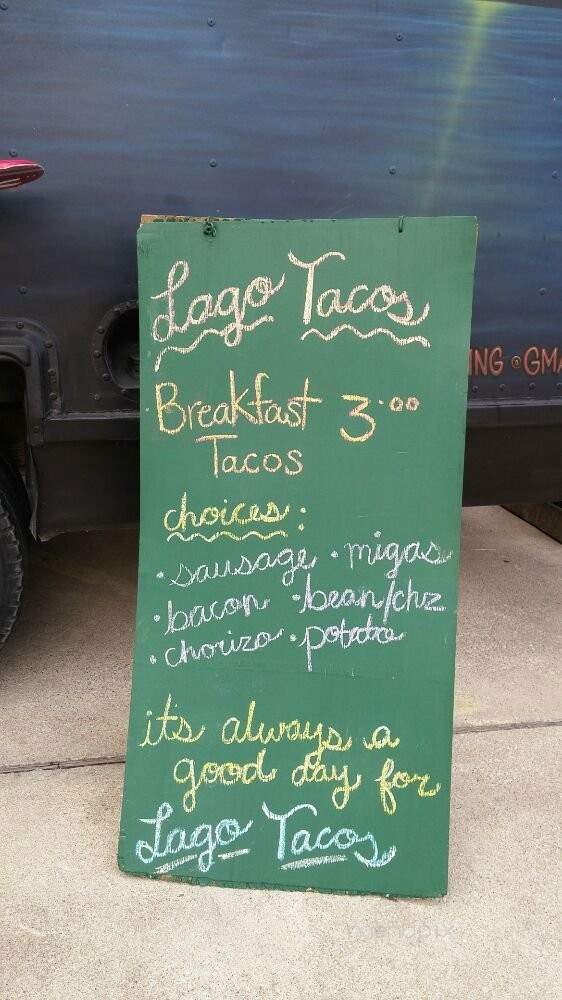 Lago Tacos
Breakfast 3.00
Tacos
choices:
· sausage · migas
· bacon · bean/chz
· chorizo · potato
it's always a
good day for
Lago Tacos
NG @GMA